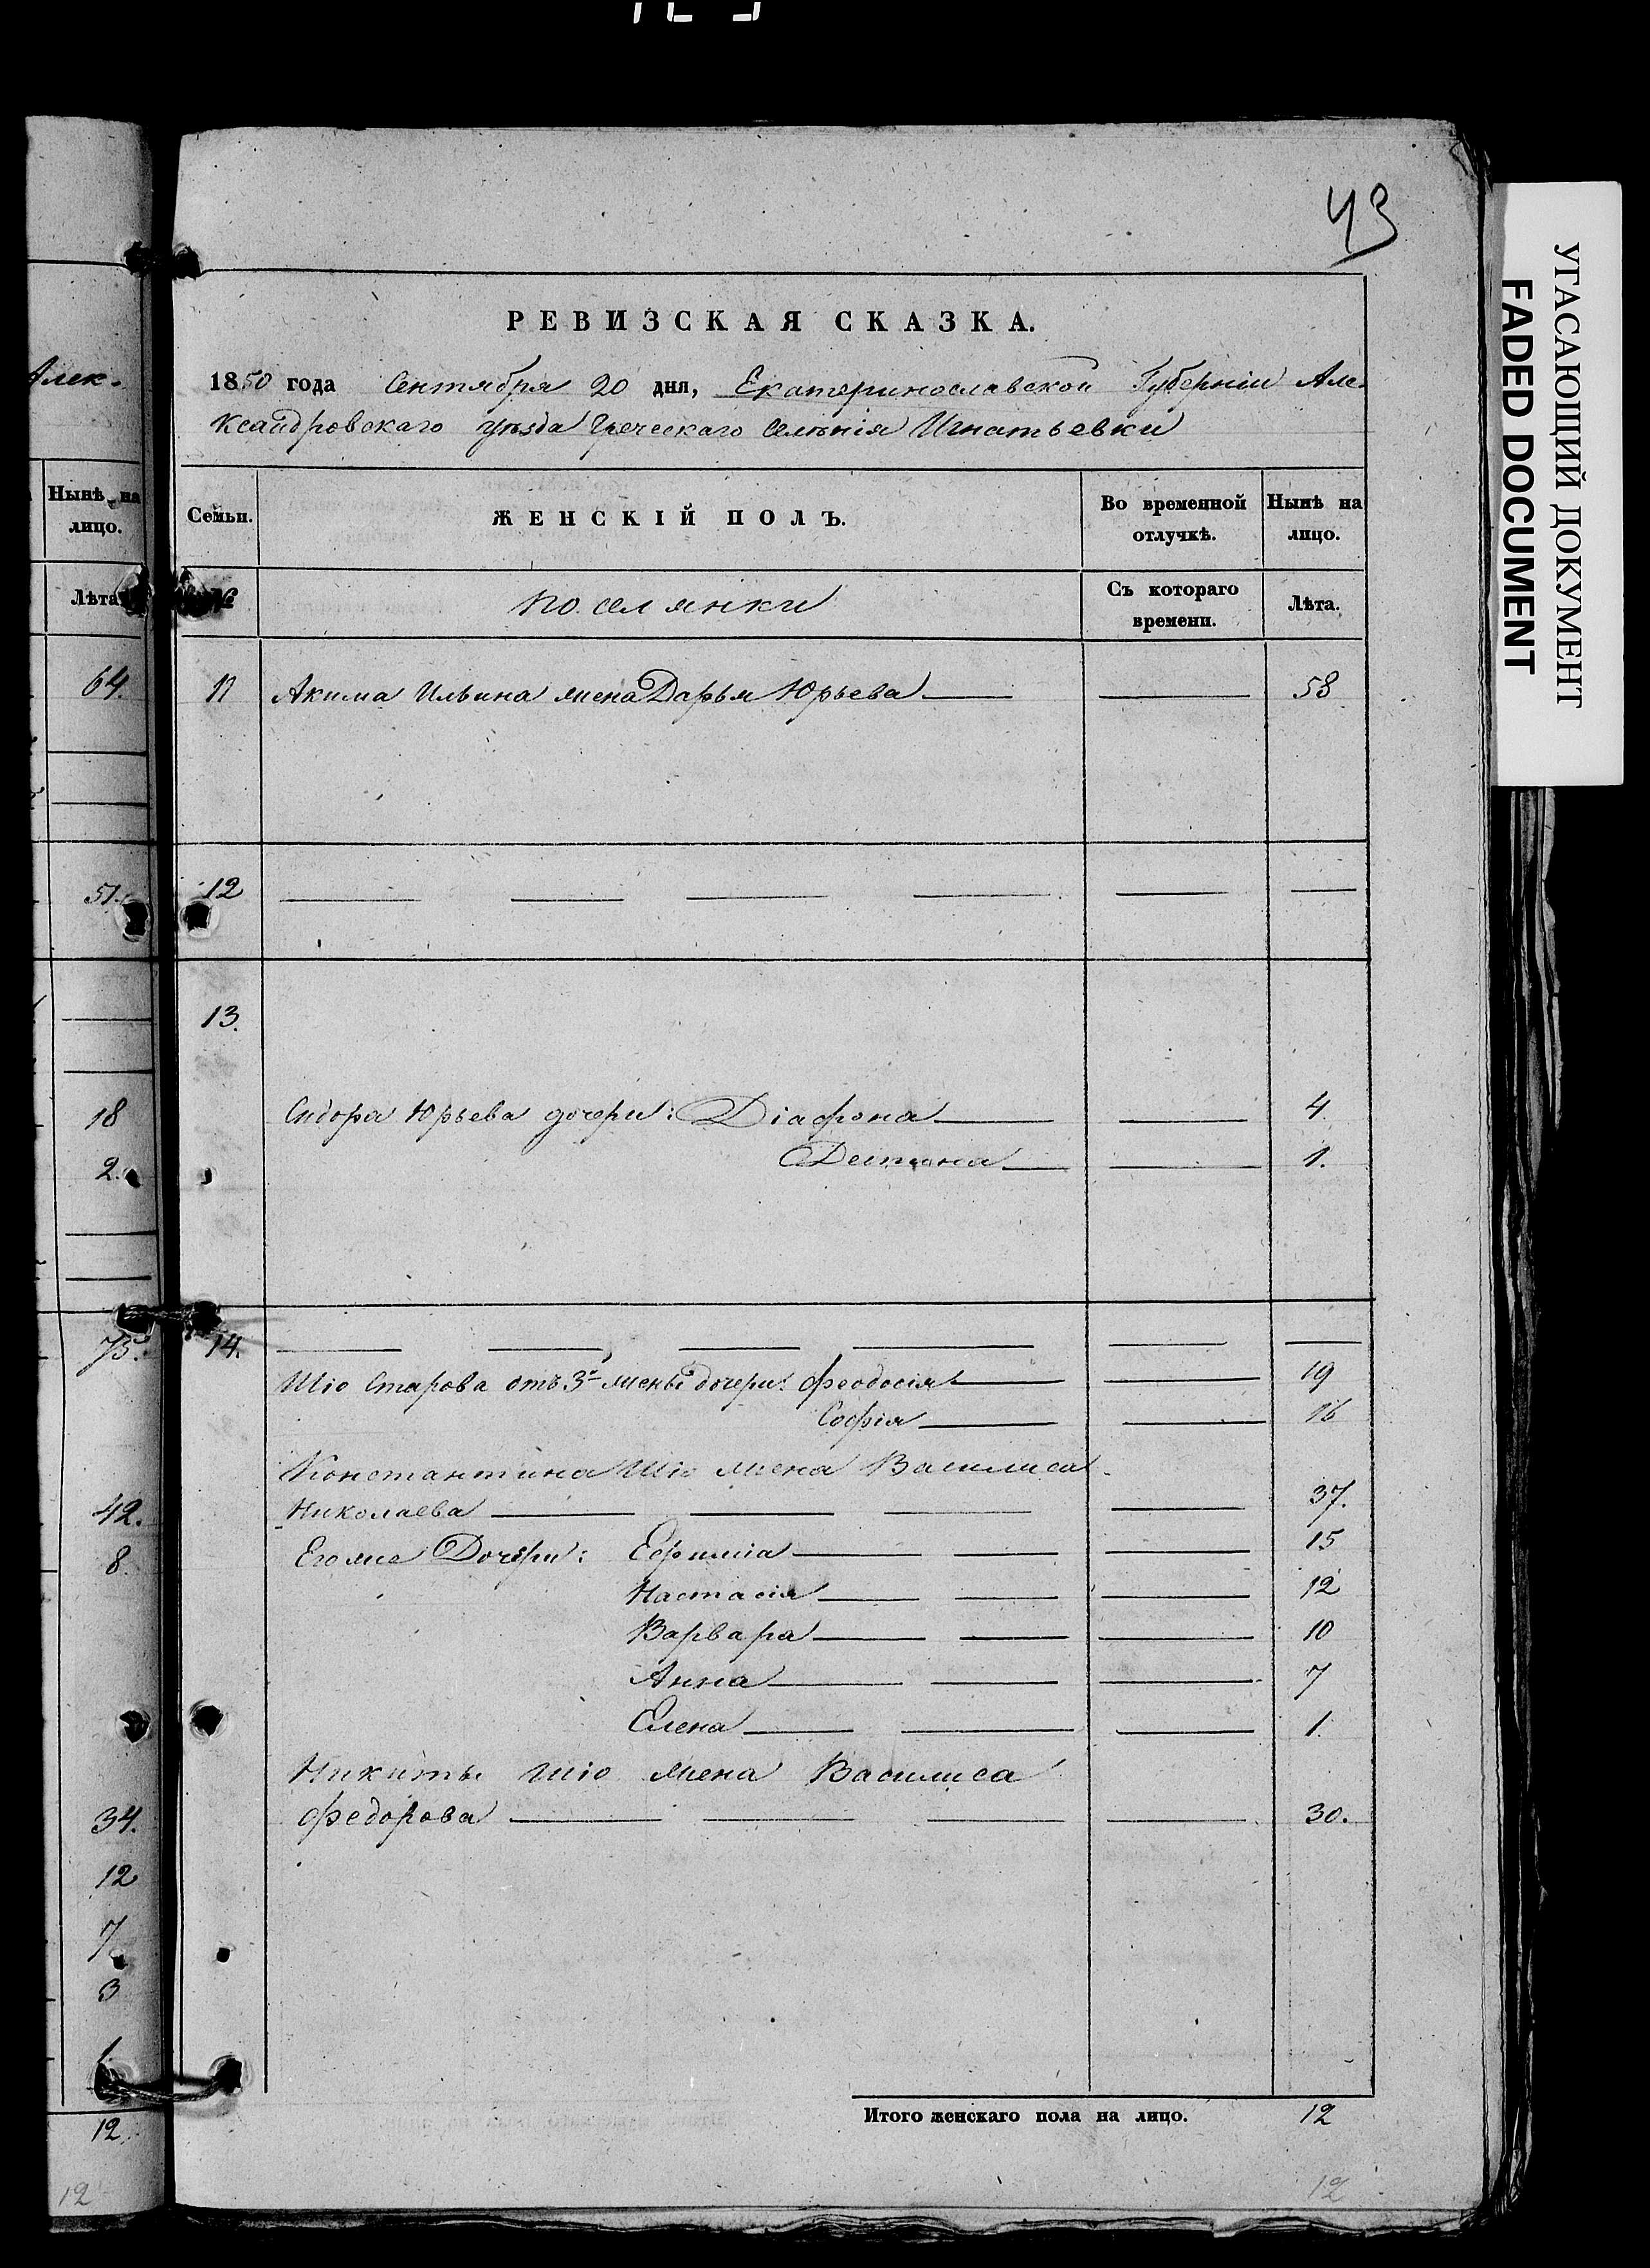 43
РЕВИЗСКАЯ СКАЗКА.
1850 года Сентября 20 дня, Екатеринославской Губерніи Але-
ксандровскаго уѣзда Греческаго селенія Игнатьевки
Семьи. ЖЕНСКІЙ ПОЛЪ. Во временной отлучкѣ. Нынѣ на лицо.
№ поселянки Съ котораго времени. Лѣта.
11 Акима Ильина жена Дарья Юрьева 58
12
13.
Сидора Юрьева дочери: Діафона 4.
1.
14.
Шіо Старова отъ 3й жены дочери: Феодосія 19
Софія 16
Константина Шіо жена Василиса
Николаева 37.
Его же Дочери: Ефимія 15
Настасія 12
Варвара 10
Анна 7
Елена 1.
Никиты Шіо жена Василиса
Федорова 30.
Итого женскаго пола на лицо. 12
12
Алек-
Нынѣ на
лицо.
Лѣта
64.
51.
18
2.
75.
42.
8.
34.
12
7.
3
1.
12
12
УГАСАЮЩИЙ ДОКУМЕНТ
FADED DOCUMENT